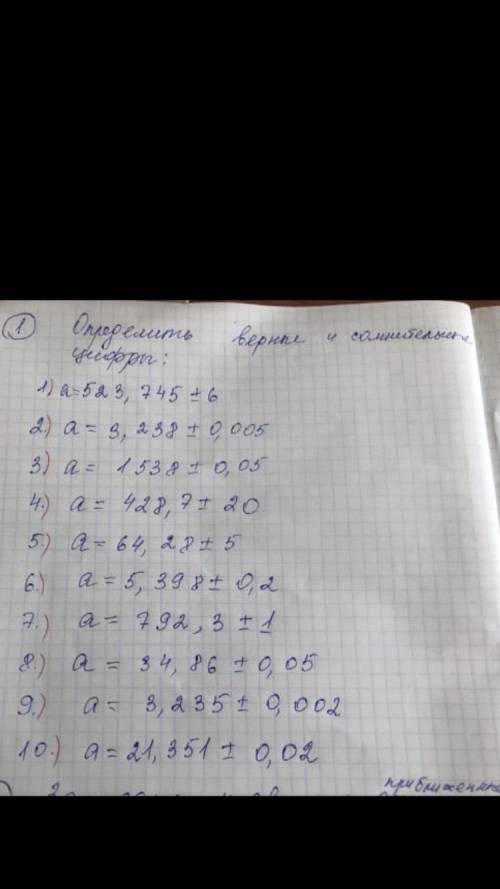 1 Определить верные и сомнительные
цифры:
1) а=523,745 ± 6
2) а = 3,238 ± 0,005
3) а = 1538 ± 0,05
4.) а = 428,7 ± 20
5.) а = 64,28 ± 5
6.) а = 5,398 ± 0,2
7.) а = 792,3 ± 1
8.) а = 34,86 ± 0,05
9.) а = 3,235 ± 0,002
10.) а = 21,351 ± 0,02